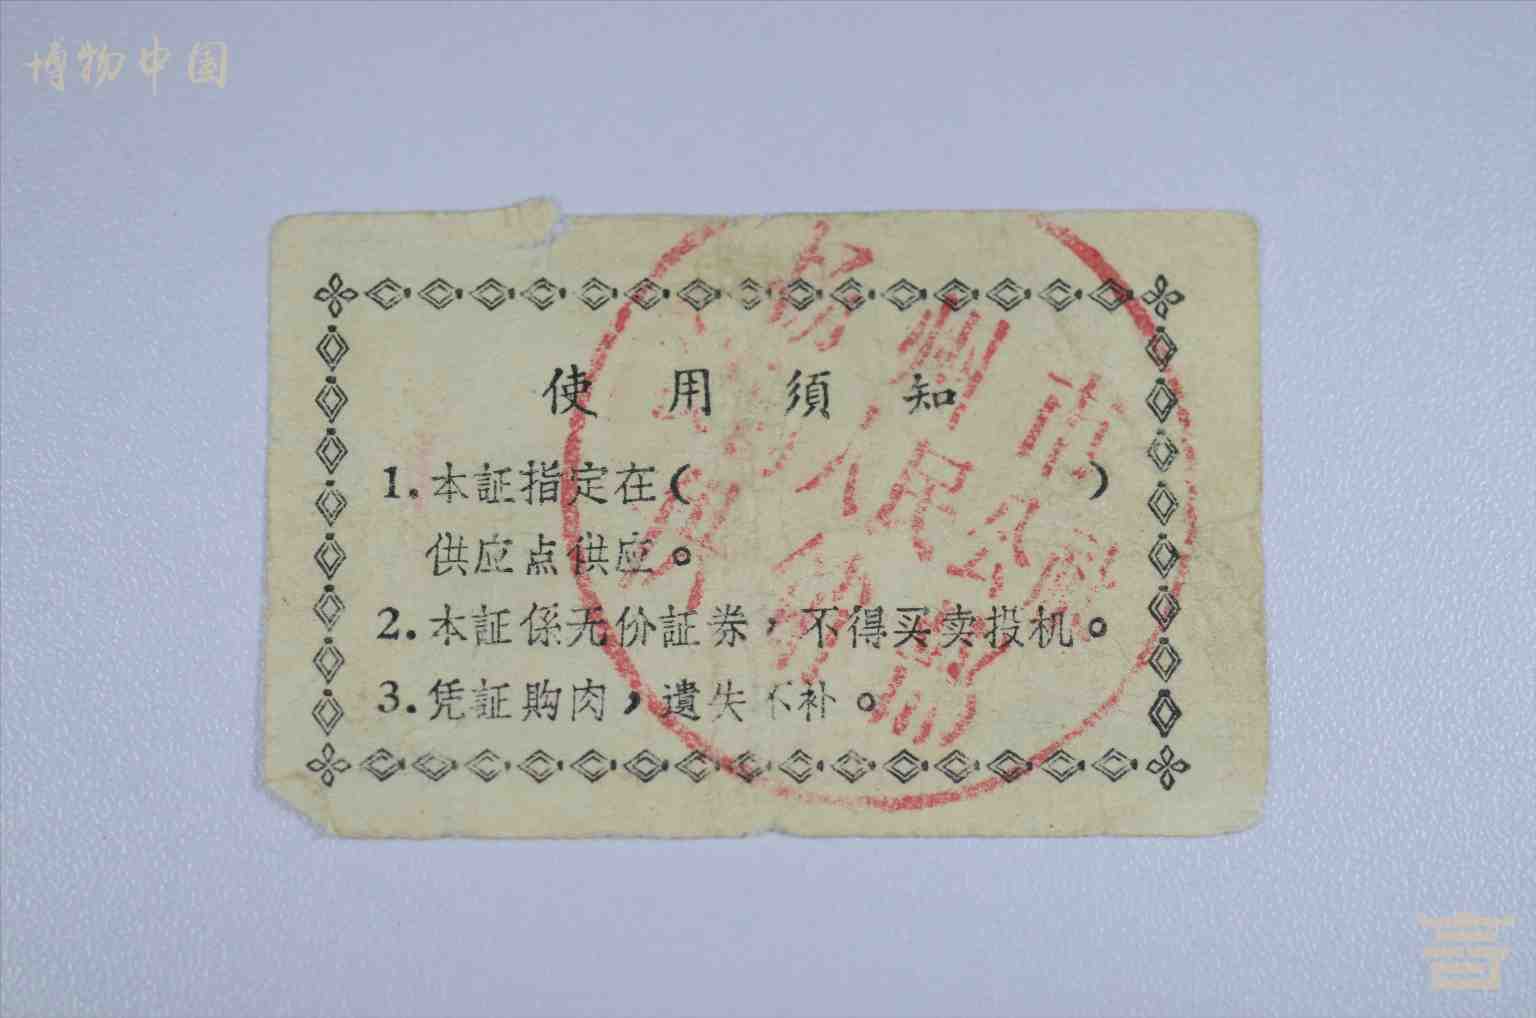 博物中国
使用須知
1.本証指定在(　　　　　)
供应点供应。
2.本証係无价証券，不得买卖投机。
3.凭証购肉，遺失不补。
州市
人民公